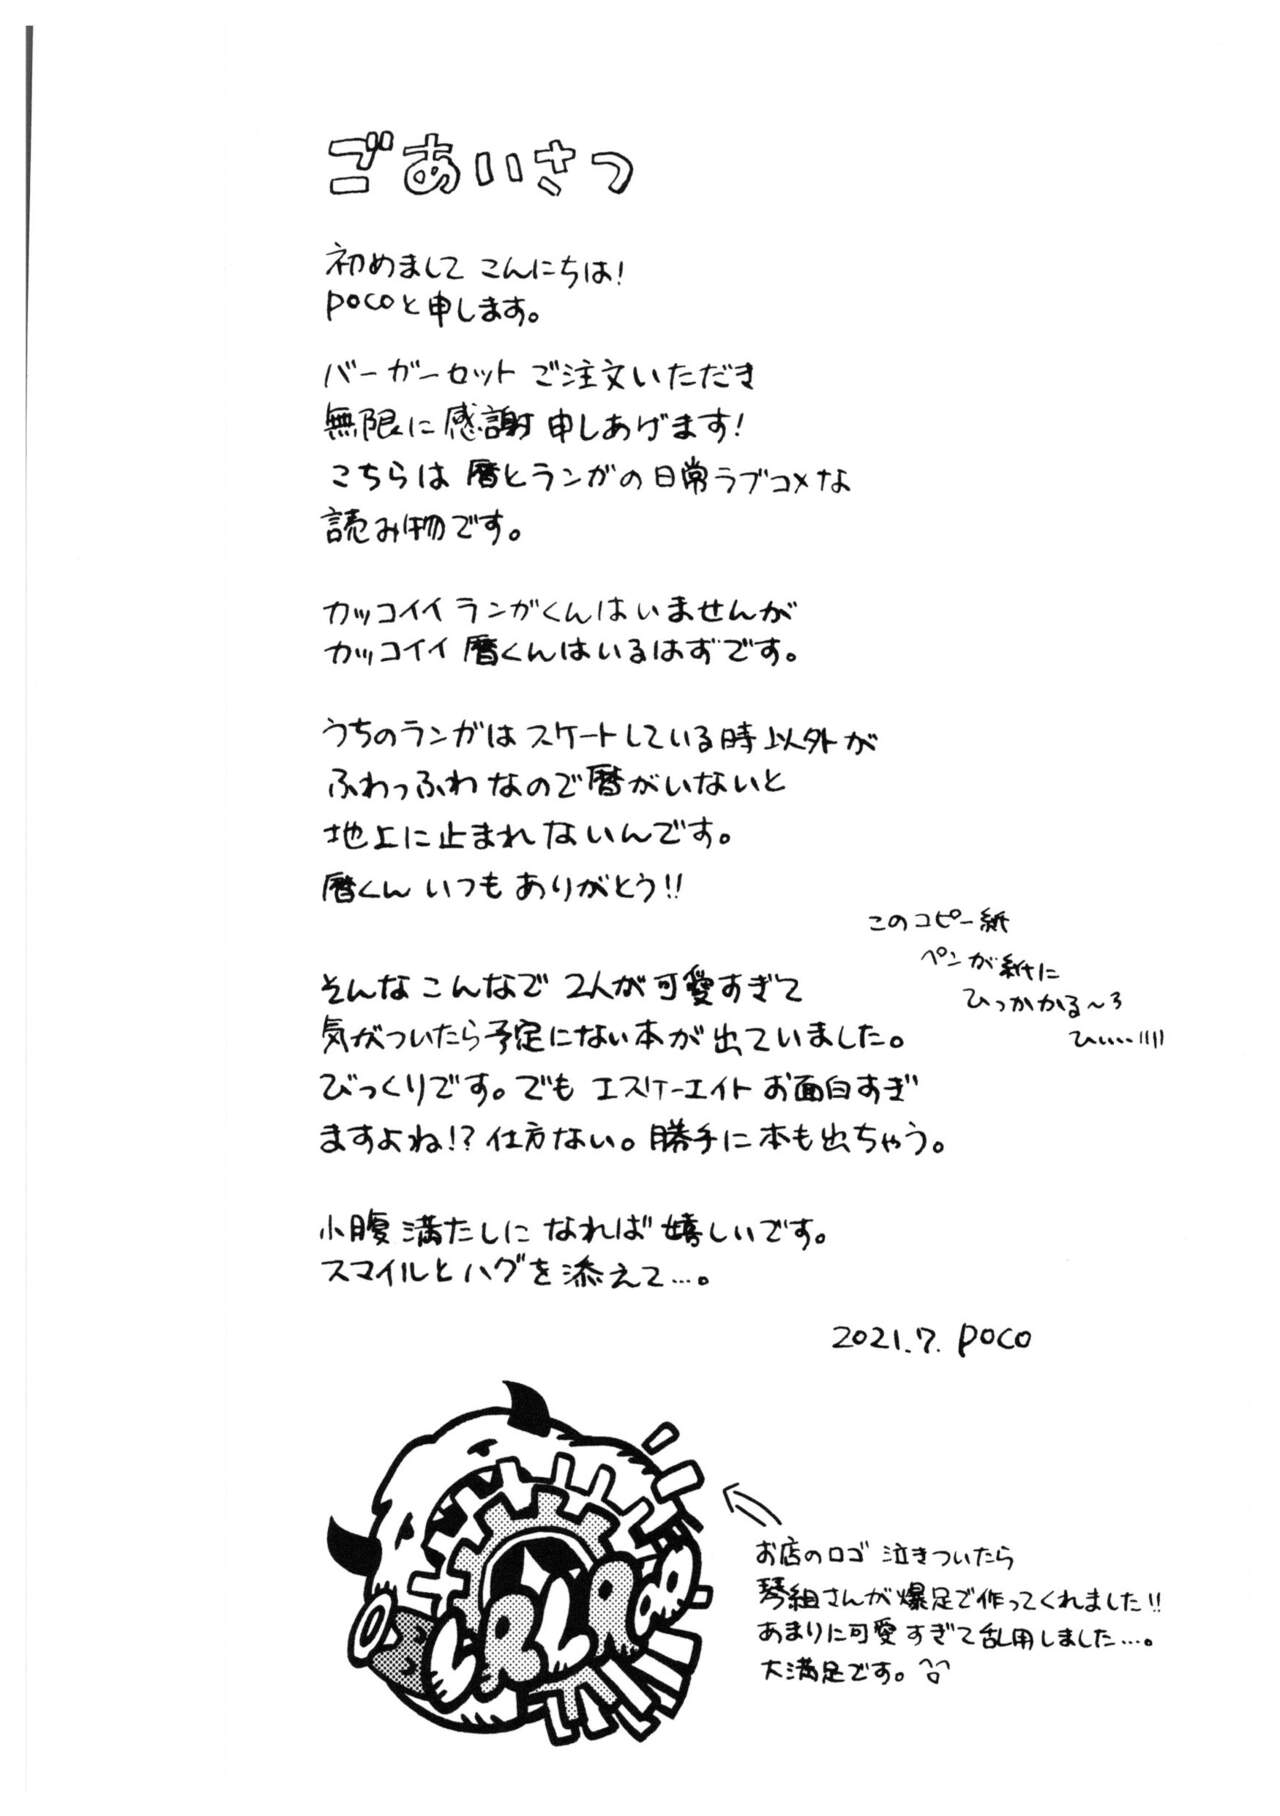 ごあいさつ
初めまして こんにちは!
pocoと申します。
バーガーセット ご注文いただき
無限に感謝申しあげます!
こちらは 暦とランガの日常ラブコメな
読み物です。
カッコイイ ランガくんはいませんが
カッコイイ 暦くんはいるはずです。
うちのランガは スケートしている時以外が
ふわっふわ なので暦がいないと
地上に止まれないんです。
暦くん いつも ありがとう!!
このコピー紙
ペンが紙に
ひっかかる〜ろ
ひぃぃ…
そんなこんなで 2人が可愛すぎて
気がついたら予定にない本が出ていました。
びっくりです。でも エスケーエイト お面白すぎ
ますよね!? 仕方ない。勝手に本も出ちゃう。
小腹満たしに なれば嬉しいです。
スマイルとハグを添えて…。
2021.7. poco
LRLR
お店のロゴ 泣きついたら
琴組さんが爆足で作ってくれました!!
あまりに可愛すぎて乱用しました…。
大満足です。